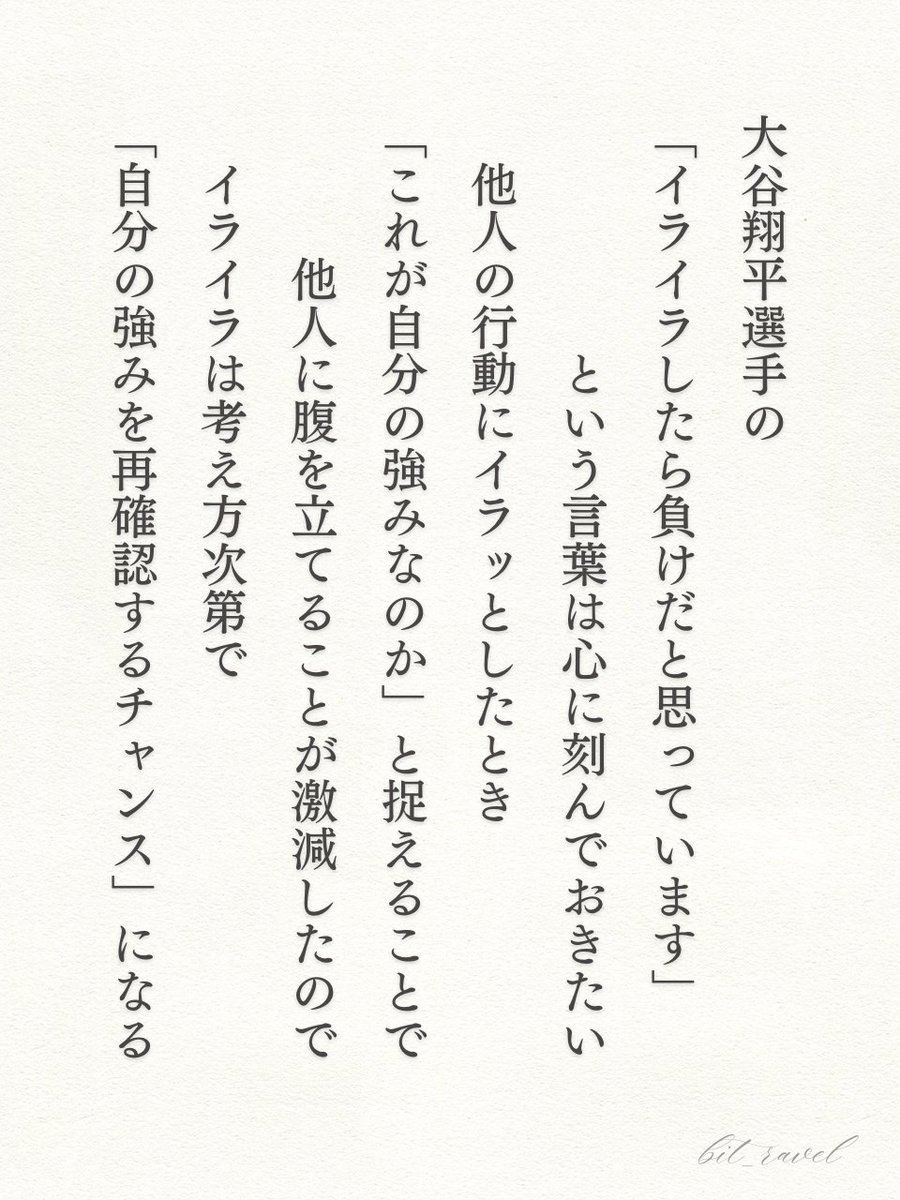 大谷翔平選手の
「イライラしたら負けだと思っています」
という言葉は心に刻んでおきたい
他人の行動にイラッとしたとき
「これが自分の強みなのか」と捉えることで
他人に腹を立てることが激減したので
イライラは考え方次第で
「自分の強みを再確認するチャンス」になる
bit_ravel